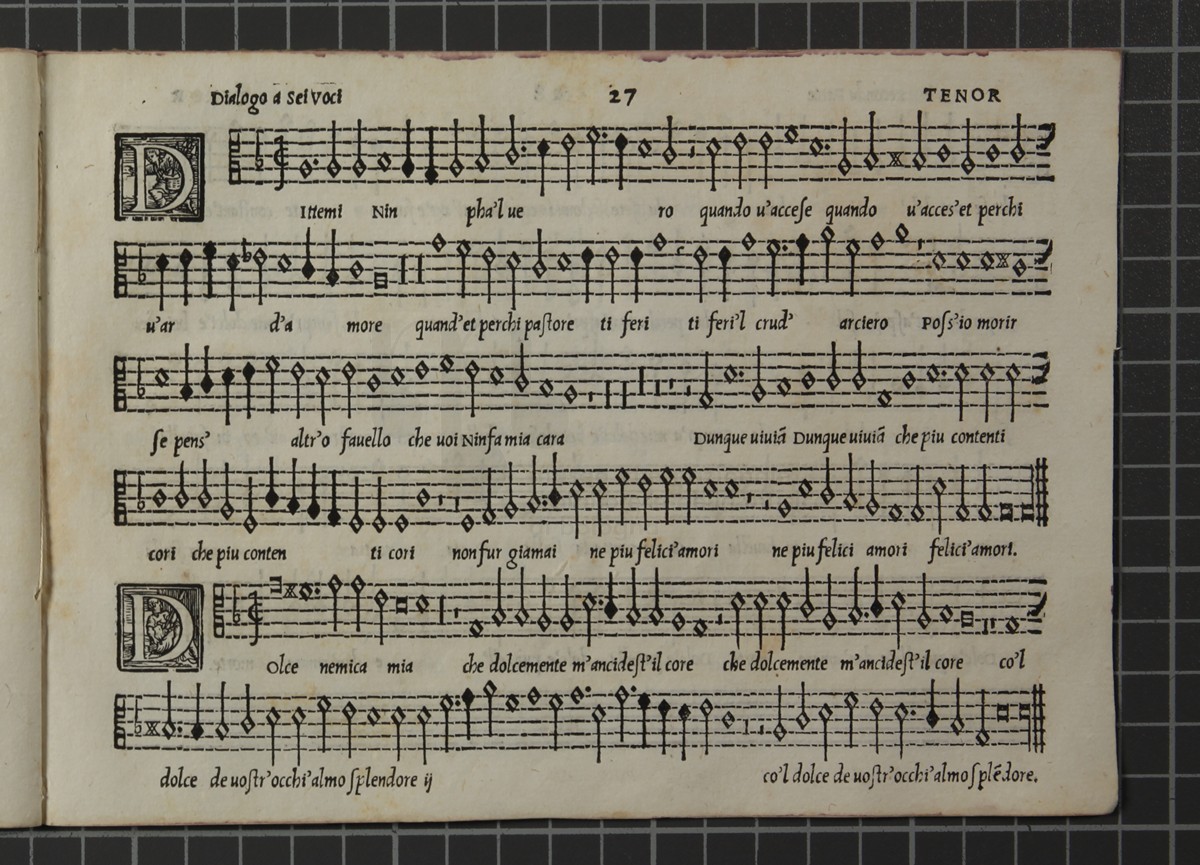 Dialogo a Sei Voci 27 TENOR
D Ittemi Nin pha'l ue ro quando u'accese quando u'acces'et perchi
u'ar d'a more quand'et perchi pastore ti feri ti feri'l crud' arciero Poss'io morir
se pens' altr'o fauello che uoi Ninfa mia cara Dunque uiuiā Dunque uiuiā che piu contenti
cori che piu conten ti cori non fur giamai ne piu felici'amori ne piu felici amori felici'amori.
D Olce nemica mia che dolcemente m'ancidest'il core che dolcemente m'ancidest'il core co'l
dolce de uostr'occhi'almo splendore ij co'l dolce de uostr'occhi'almo splēdore.